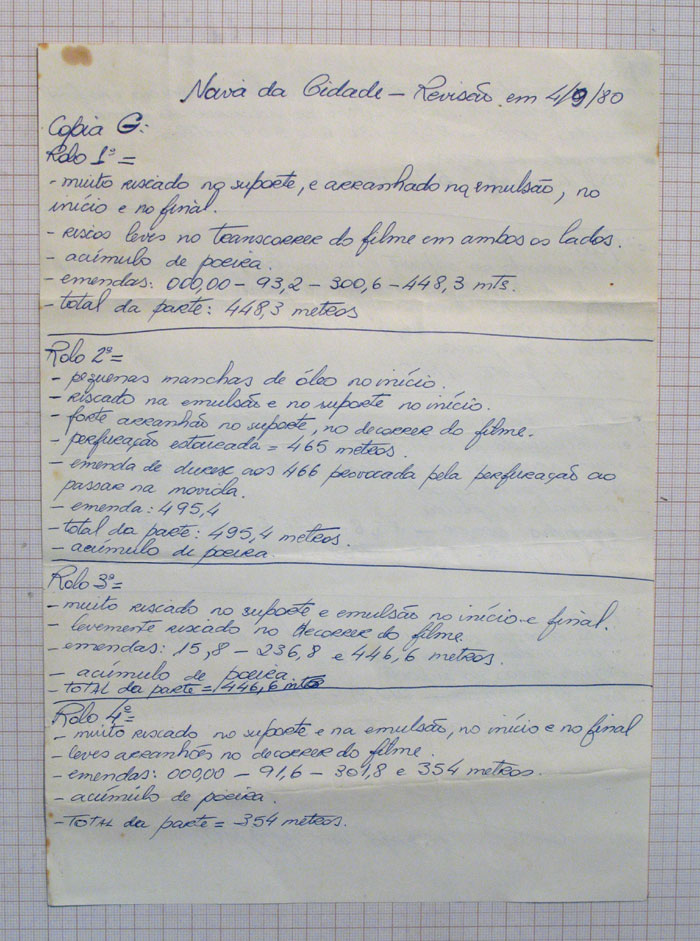 Nova da Cidade – Revisão em 4/9/80
Copia G:
Rolo 1º =
- muito riscado no suporte, e arranhado na emulsão, no
início e no final.
- riscos leves no transcorrer do filme em ambos os lados.
- acúmulo de poeira.
- emendas: 000,00 – 93,2 – 300,6 – 448,3 mts.
- total da parte: 448,3 metros
Rolo 2º =
- pequenas manchas de óleo no início.
- riscado na emulsão e no suporte no início.
- forte arranhão no suporte, no decorrer do filme.
- perfuração estourada = 465 metros.
- emenda de durex aos 466 provocada pela perfuração ao
passar na moviola.
- emenda: 495,4
- total da parte: 495,4 metros.
- acúmulo de poeira
Rolo 3º =
- muito riscado no suporte e emulsão no início e final.
- levemente riscado no decorrer do filme
- emendas: 15,8 – 236,8 e 446,6 metros.
- acúmulo de poeira.
- TOTAL da parte = 446,6 mts
Rolo 4º =
- muito riscado no suporte e na emulsão, no início e no final
- leves arranhões no decorrer do filme.
- emendas: 000,00 – 91,6 – 301,8 e 354 metros.
- acúmulo de poeira.
- TOTAL da parte = 354 metros.